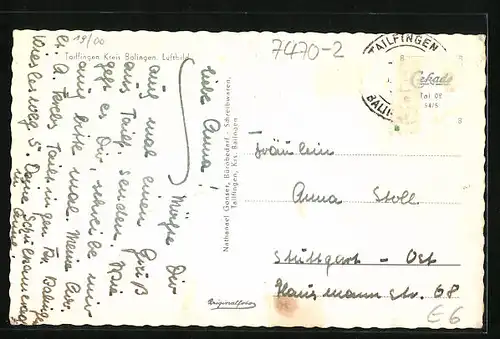 19/00
Tailfingen Kreis Balingen Luftbild
7470-2
TAILFINGEN
BALIN
Cekade
Tai 08
54/5
8
8
8
Liebe Anna!
Möchte Dir
auch mal einen Gruß
aus Tailf. senden. Wie
geht es Dir, schreibe mir
auch bitte mal. Meine Adr.
ist A. Tailfingen Krs. Balingen
5. Deine Schulkamerad
Nathanael Gonser, Bürobedarf - Schreibwaren,
Tailfingen, Krs. Balingen
Originalfoto
Fräulein
Anna Stoll
Stuttgart - Ost
Hausmann str. 68
E6